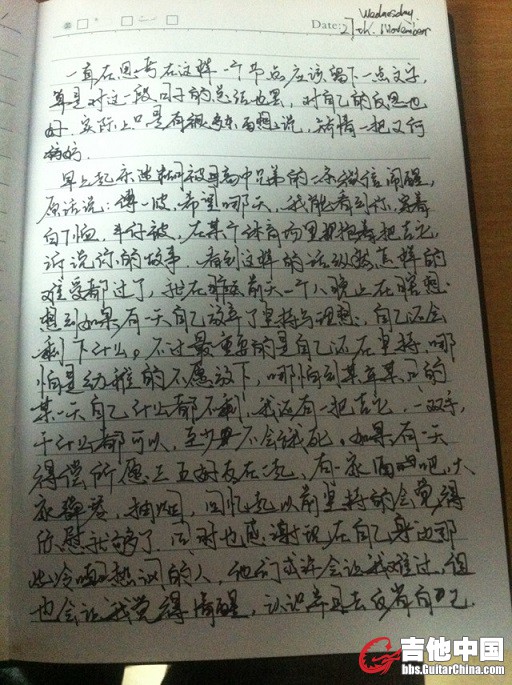 Wednesday.
Date: 27th. November
一直在思考在这样一个节点应该留下一点文字,
算是对这一段日子的总结也罢,对自己的反思也
好.实际上只是有很多东西想说,矫情一把又何
妨.
早上起床 被高中兄弟的一条微信闹醒,
原话说:傅一波,希望哪天,我能看到你,穿着
白T恤.牛仔裤,在某个体育场里抱着把吉它,
诉说你的故事.看到这样的话纵然怎样的
难受都过了,我在前天一个人晚上在瞎想:
想到如果有一天自己放弃了坚持与理想,自己还会
剩下什么。不过最重要的是自己还在坚持.哪
怕是幼稚的不愿放下,哪怕到某年某月的
某一天自己什么都不剩,我还有一把吉它.一双手,
干什么都可以,至少不会饿死。如果有一天
得偿所愿三五好友在一起,有永 吧,大
家弹琴,抽烟,回忆起以前坚持的会觉得
欣慰就够了.同时也感谢现在自己身边那
些冷嘲热讽的人,他们或许会让我难过,但
也会让我觉得清醒,认识并且去反省自己.
吉他中国
bbs.GuitarChina.com